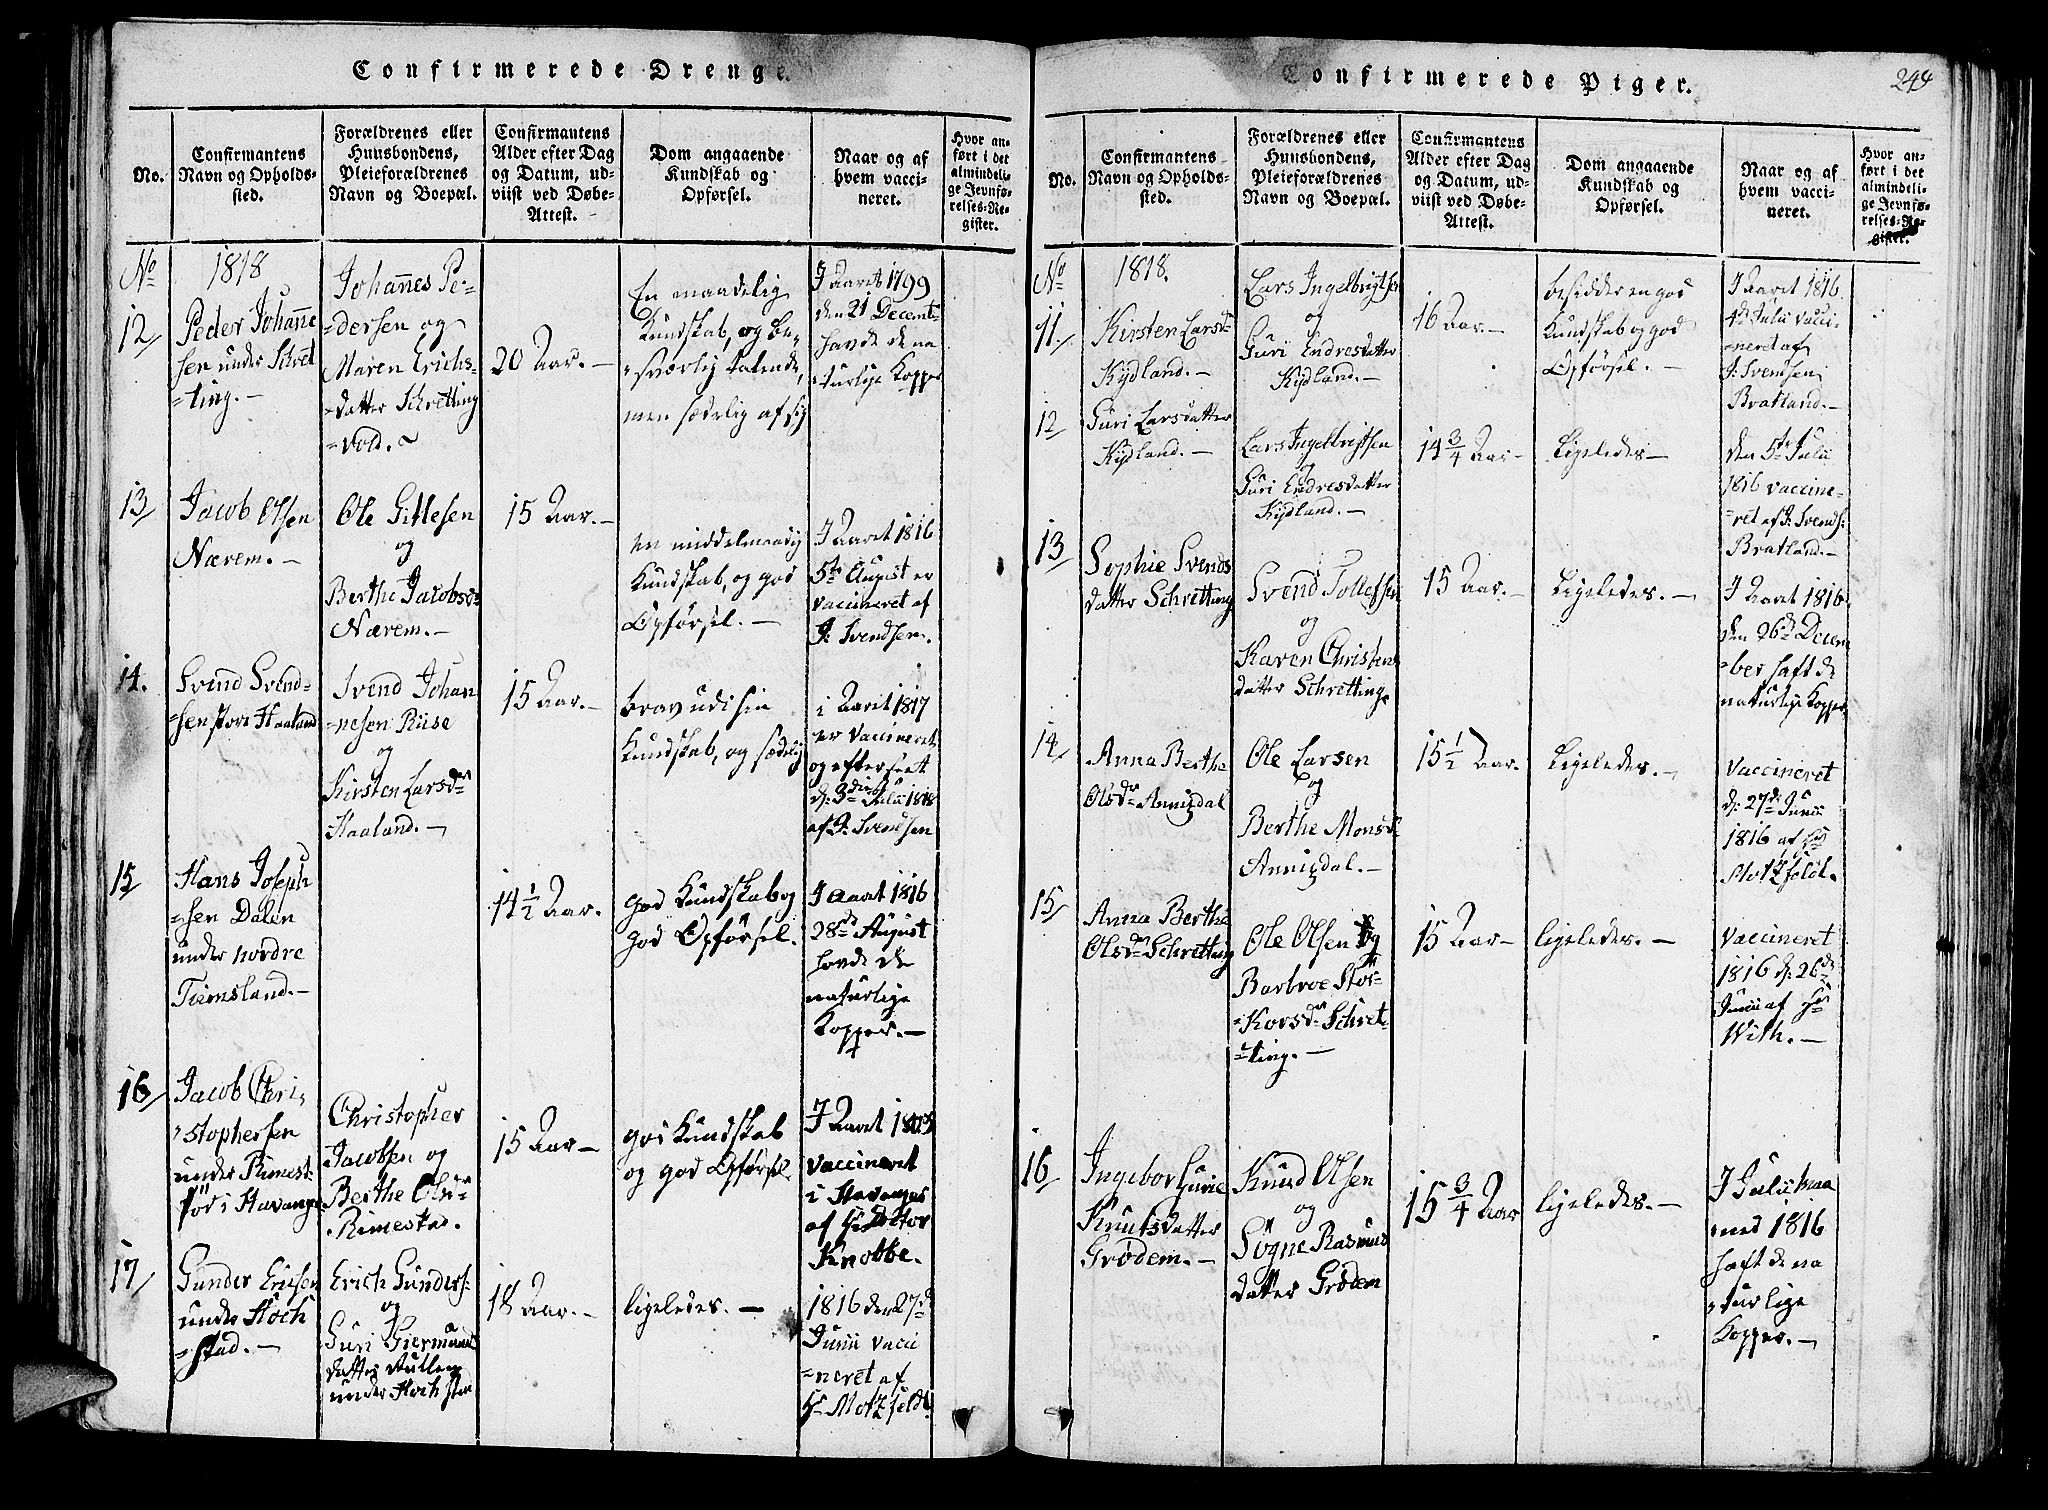 Confirmerede Drenge.
No.
Confirmantens
Navn og Opholds-
sted.
Forældrenes eller
Huusbondens,
Pleieforældrenes
Navn og Boepæl.
Confirmantens
Alder efter Dag
og Datum, ud-
viist ved Døbe-
Attest.
Dom angaaende
Kundskab og
Opførsel.
Naar og af
hvem vacci-
neret.
Hvor an-
ført i det
almindeli-
ge Jevnfø-
relses-Re-
gister.
No
1818
12
Peder Johanne
sen under Schret
=ting.-
Johannes Pe-
=dersen og
Maren Erichs-
=datter Schretting
=vold.
20 Aar.-
En maadelig
Kundskab, og be-
=sværlig talende,
men sædelig af sig
I Aaret 1799
den 21 Decemb
havde de na
=turlige Kopper
13
Jacob Olsen
Nærem.-
Ole Gitlesen
og
Berthe Jacobsd
Nærem.-
15 Aar.-
en middelmaadig
Kundskab, og god
Opførsel.-
I Aaret 1816
5te August er
vaccineret af
J: Svendsen.
14.
Svend Svend-
=sen store Haaland
Svend Johan
=nesen Riise
og
Kirsten Larsdr
Haaland.-
15 Aar.-
brav udi sin
Kundskab, og sædelig
i Aaret 1817
er vaccineret
og efterseet
d: 3die Julii 1818
af J. Svendsen
15
Hans Joseph
=sen Dalen
under nordre
Tiemsland.-
14 1/2 Aar.
god Kundskab og
god Opførsel.
I Aaret 1816
28de August
havde de
naturlige
Kopper.-
16
Jacob Chri,
=stophersen
under Rimest
før i Stavanger
Christopher
Jacobsen og
Berthe Olsdr
Rimestad.
15 Aar-
god Kundskab
og god Opførsel.
I Aaret
vaccineret
i Stavanger
af Hr Doctor
Knobbe.
17
Gunder Erichsen
under Hoch
=stad.-
Erich Gunders:
og
Guri Giermund
datter
under Hochstad
18 Aar.-
ligeledes.-
1816 den 27de
Junii vacci
=neret af
Hr Motzfeldt
Confirmerede Piger.
244
No.
Confirmantens
Navn og Opholds-
sted.
Forældrenes eller
Huusbondens,
Pleieforældrenes
Navn og Boepæl.
Confirmantens
Alder efter Dag
og Datum, ud-
viist ved Døbe-
Attest.
Dom angaaende
Kundskab og
Opførsel.
Naar og af
hvem vacci-
neret.
Hvor an-
ført i det
almindeli-
ge Jevnfø-
relses-Re-
gister.
No
1818.
11.
Kirsten Larsd
Kydland.-
Lars Ingelbrigtsen
og
Guri Endresdatter
Kydland.-
16 Aar.-
besidder en god
Kundskab og god
Opførsel.-
I Aaret 1816
4de Julii vacci-
=neret af
J: Svendsen
Bratland.-
12
Guri Larsdatter
Kydland.-
Lars Ingelbrigtsen
og
Guri Endresdatter
Kydland.-
14 3/4 Aar-
Ligeledes-
den 5te Julii
1816 vaccine-
=ret af J: Svends:
Bratland.-
13
Sophie Svends
datter Schretting
Svend Tollefsen
og
Karen Christens
datter Schretting
15 Aar.-
Ligeledes.-
I Aaret 1816
den 26de Decem
=ber haft de
naturlige Kopper
14
Anna Berthe
Olsdr Annigdal
Ole Larsen
og
Berthe Monsd
Annigdal.-
15 1/2 Aar.
Ligeledes.-
Vaccineret
d: 27de Junii
1816 af Hr
Motzfeldt.
15
Anna Berthe
Olsdr Schretting
Ole Olsen og
Barbroe Stor
=Korsdr Schret
=ting.-
15 Aar-
ligeledes.-
Vaccineret
1816 d: 26de
Junii af Hr
With.-
16
Ingebor Gurie
Knutsdatter
Grødem.-
Knud Olsen
og
Søgne Rasmus
datter Grødem
15 3/4 Aar
ligeledes.-
I Julii maa
ned 1816
haft de na
=turlige
Kopper.-